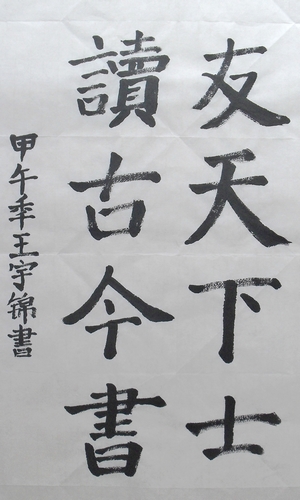 友天下士
讀古今書
甲午年王宇锦書